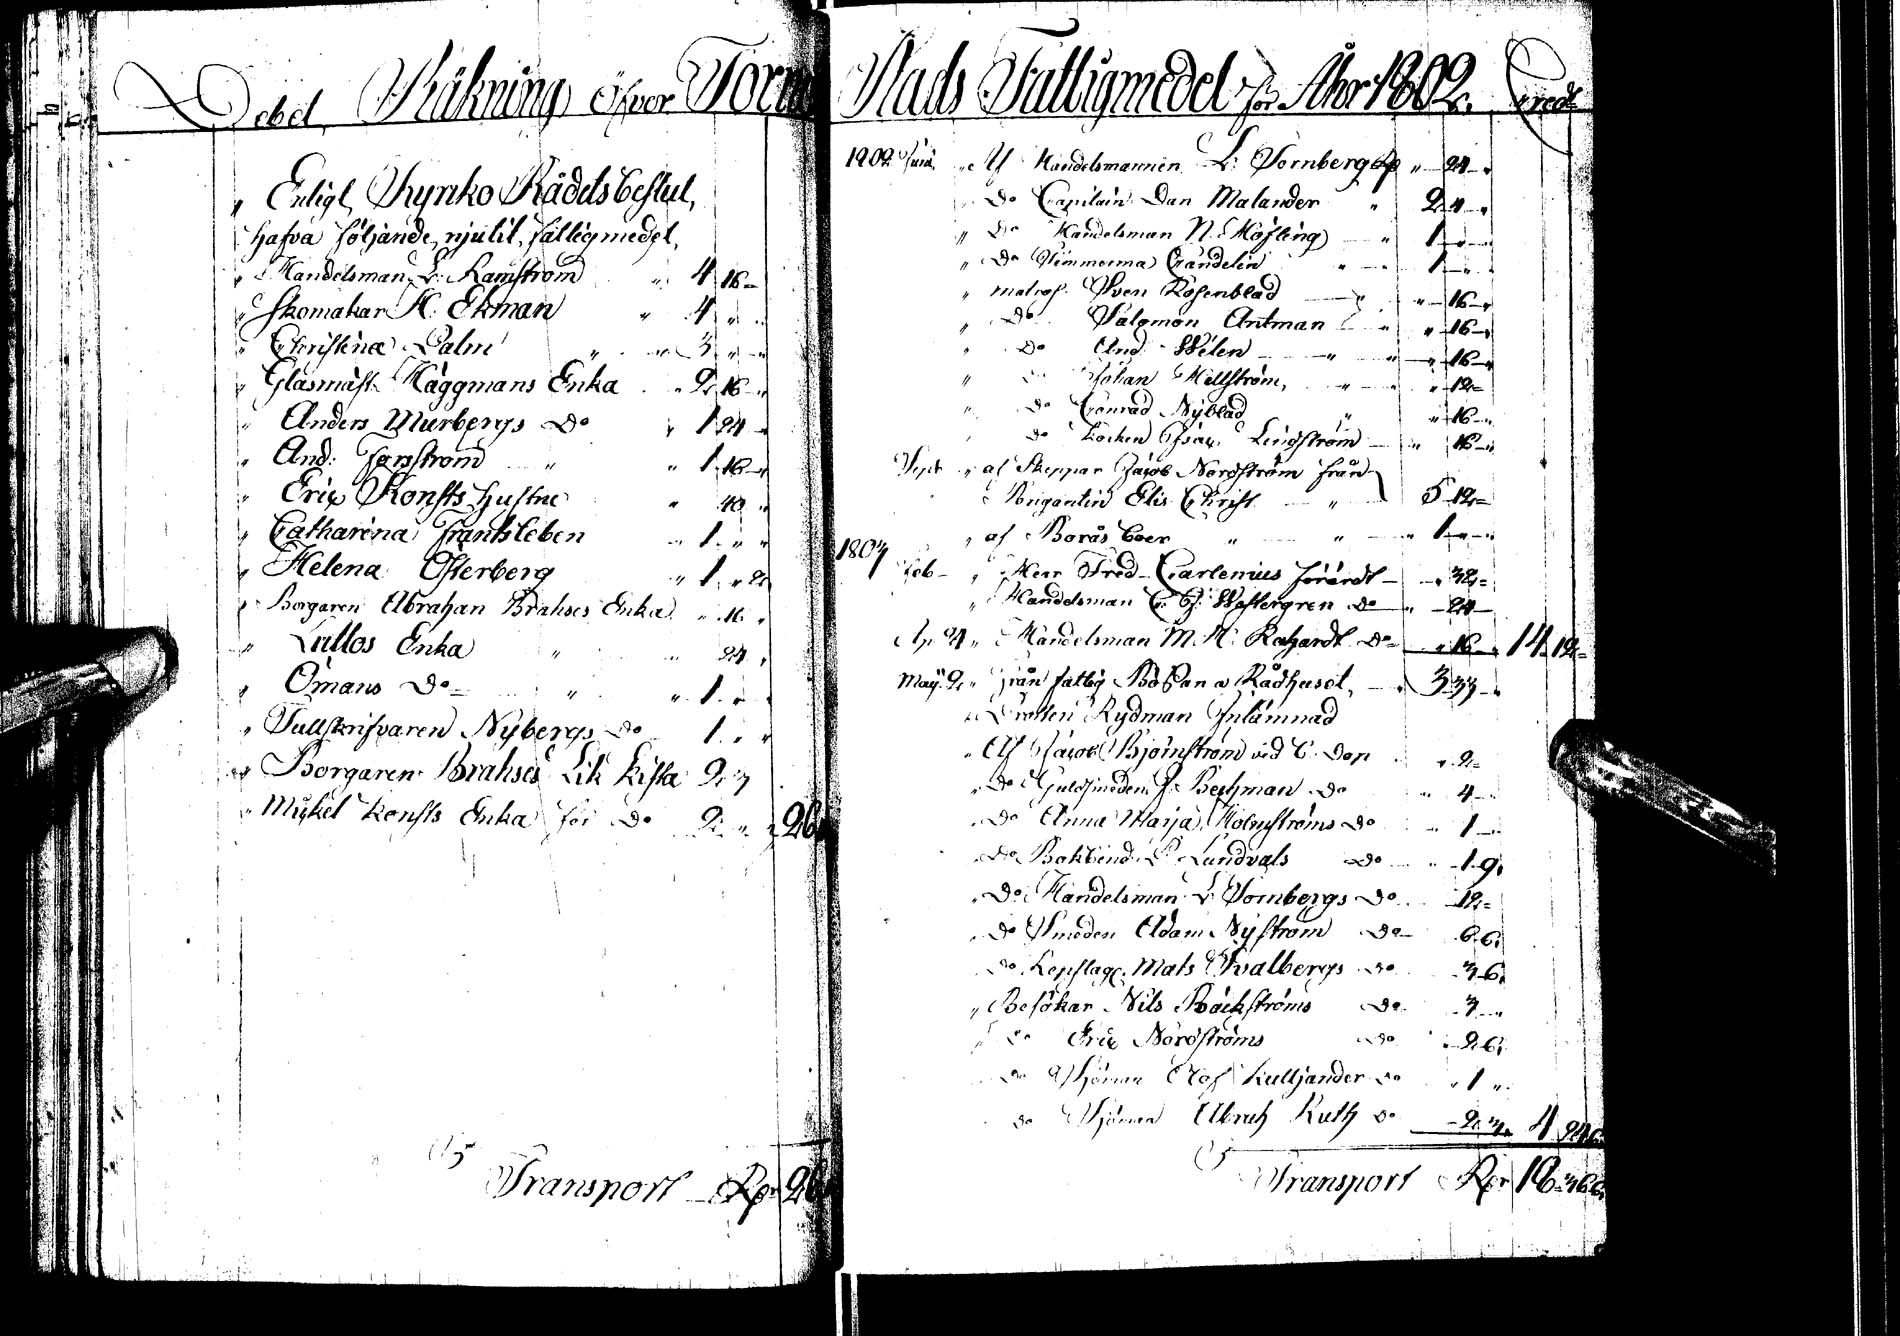 Debet, Räkning öfver Torn
„ Enligt Kyrko Rådets beslut,
hafva följande, njutit, fattigmedel,
„ Handelsman L: Ramström „ 4 16 „
„ Skomakar H. Ekman „ 4 „ „
„ Christina Palm „ „ 3 „ „
„ Glasmäst. Häggmans Enka „ 2 16 „
„ Anders Murbergs Do „ 1 24 „
„ And: Forsström „ „ 1 16 „
„ Eric Konsts Hustru „ 40 „
„ Catharina Frantsleben „ 1 „ „
„ Helena Österberg „ 1 „ 2
„ Borgaren Abraham Brahses Enka „ 16 „
„ Lullos Enka „ „ 24 „
„ Ömans Do „ „ 1 „ „
„ Tullskrifvaren Nybergs Do 1 „ „
„ Borgaren Brahses Lik kista 2 3
„ Mickel Konsts Enka för Do 2 „ „ 26
Transport Rdr 26
Stads Fattigmedel för Åhr 1802. Credit
1802 Af Handelsmannen L: Tornberg „ 24 „
„ Do Capitain Dan Malander „ 2 4 „
„ Do Handelsman N. Höfling „ 1 „ „
„ Do Timmerma Grandelin „ 1 „ „
„ matros. Sven Rosenblad „ 16 „
„ Do Salomon Antman „ „ 16 „
„ Do And Welen „ „ 16 „
„ Johan Hellström, „ „ 12 „
„ Do Conrad Nyblad „ „ 16 „
„ Do Kocken Isac Lingström „ 16 „
Sept „ af Skeppar Jacob Nordström från
Brigantin Elis Christ. „ 5 12 „
„ af Borås boer „ „ „ 1 „ „
1803
Feb „ Herr Fred Carlenius förärdt „ 32 „
„ Handelsman C. G. Westergren Do „ 24
Ap. 24 „ Handelsman M. H. Do „ 16 „ 14 12 „
Maij 2 „ från fattig Bössan a Rådhuset, 3 33 „
Rydman Inlämnad
„ Af Jacob Björnström vid C. Don „ 2 „
„ Do Guldsmeden J. Bechman Do „ 4 „
„ Do Anna Marja Holmströms Do „ 1 „
„ Do Bokbind. L. Lundvals Do „ 1 9
„ Do Handelsman L. Tornbergs Do 12 „
„ Do Smeden Adam Nyström Do 6 6
„ Do Mats Svalbergs Do 3 6
„ Besökar Nils Bäckströms Do 3 „
Do Eric Nordströms Do 2 6
Do Sjöman Olof Kulljander Do „ 1 „
Do Sjöman Abrah Ruth Do 2 3 4 24 6
Transport Rdr 18 36 6